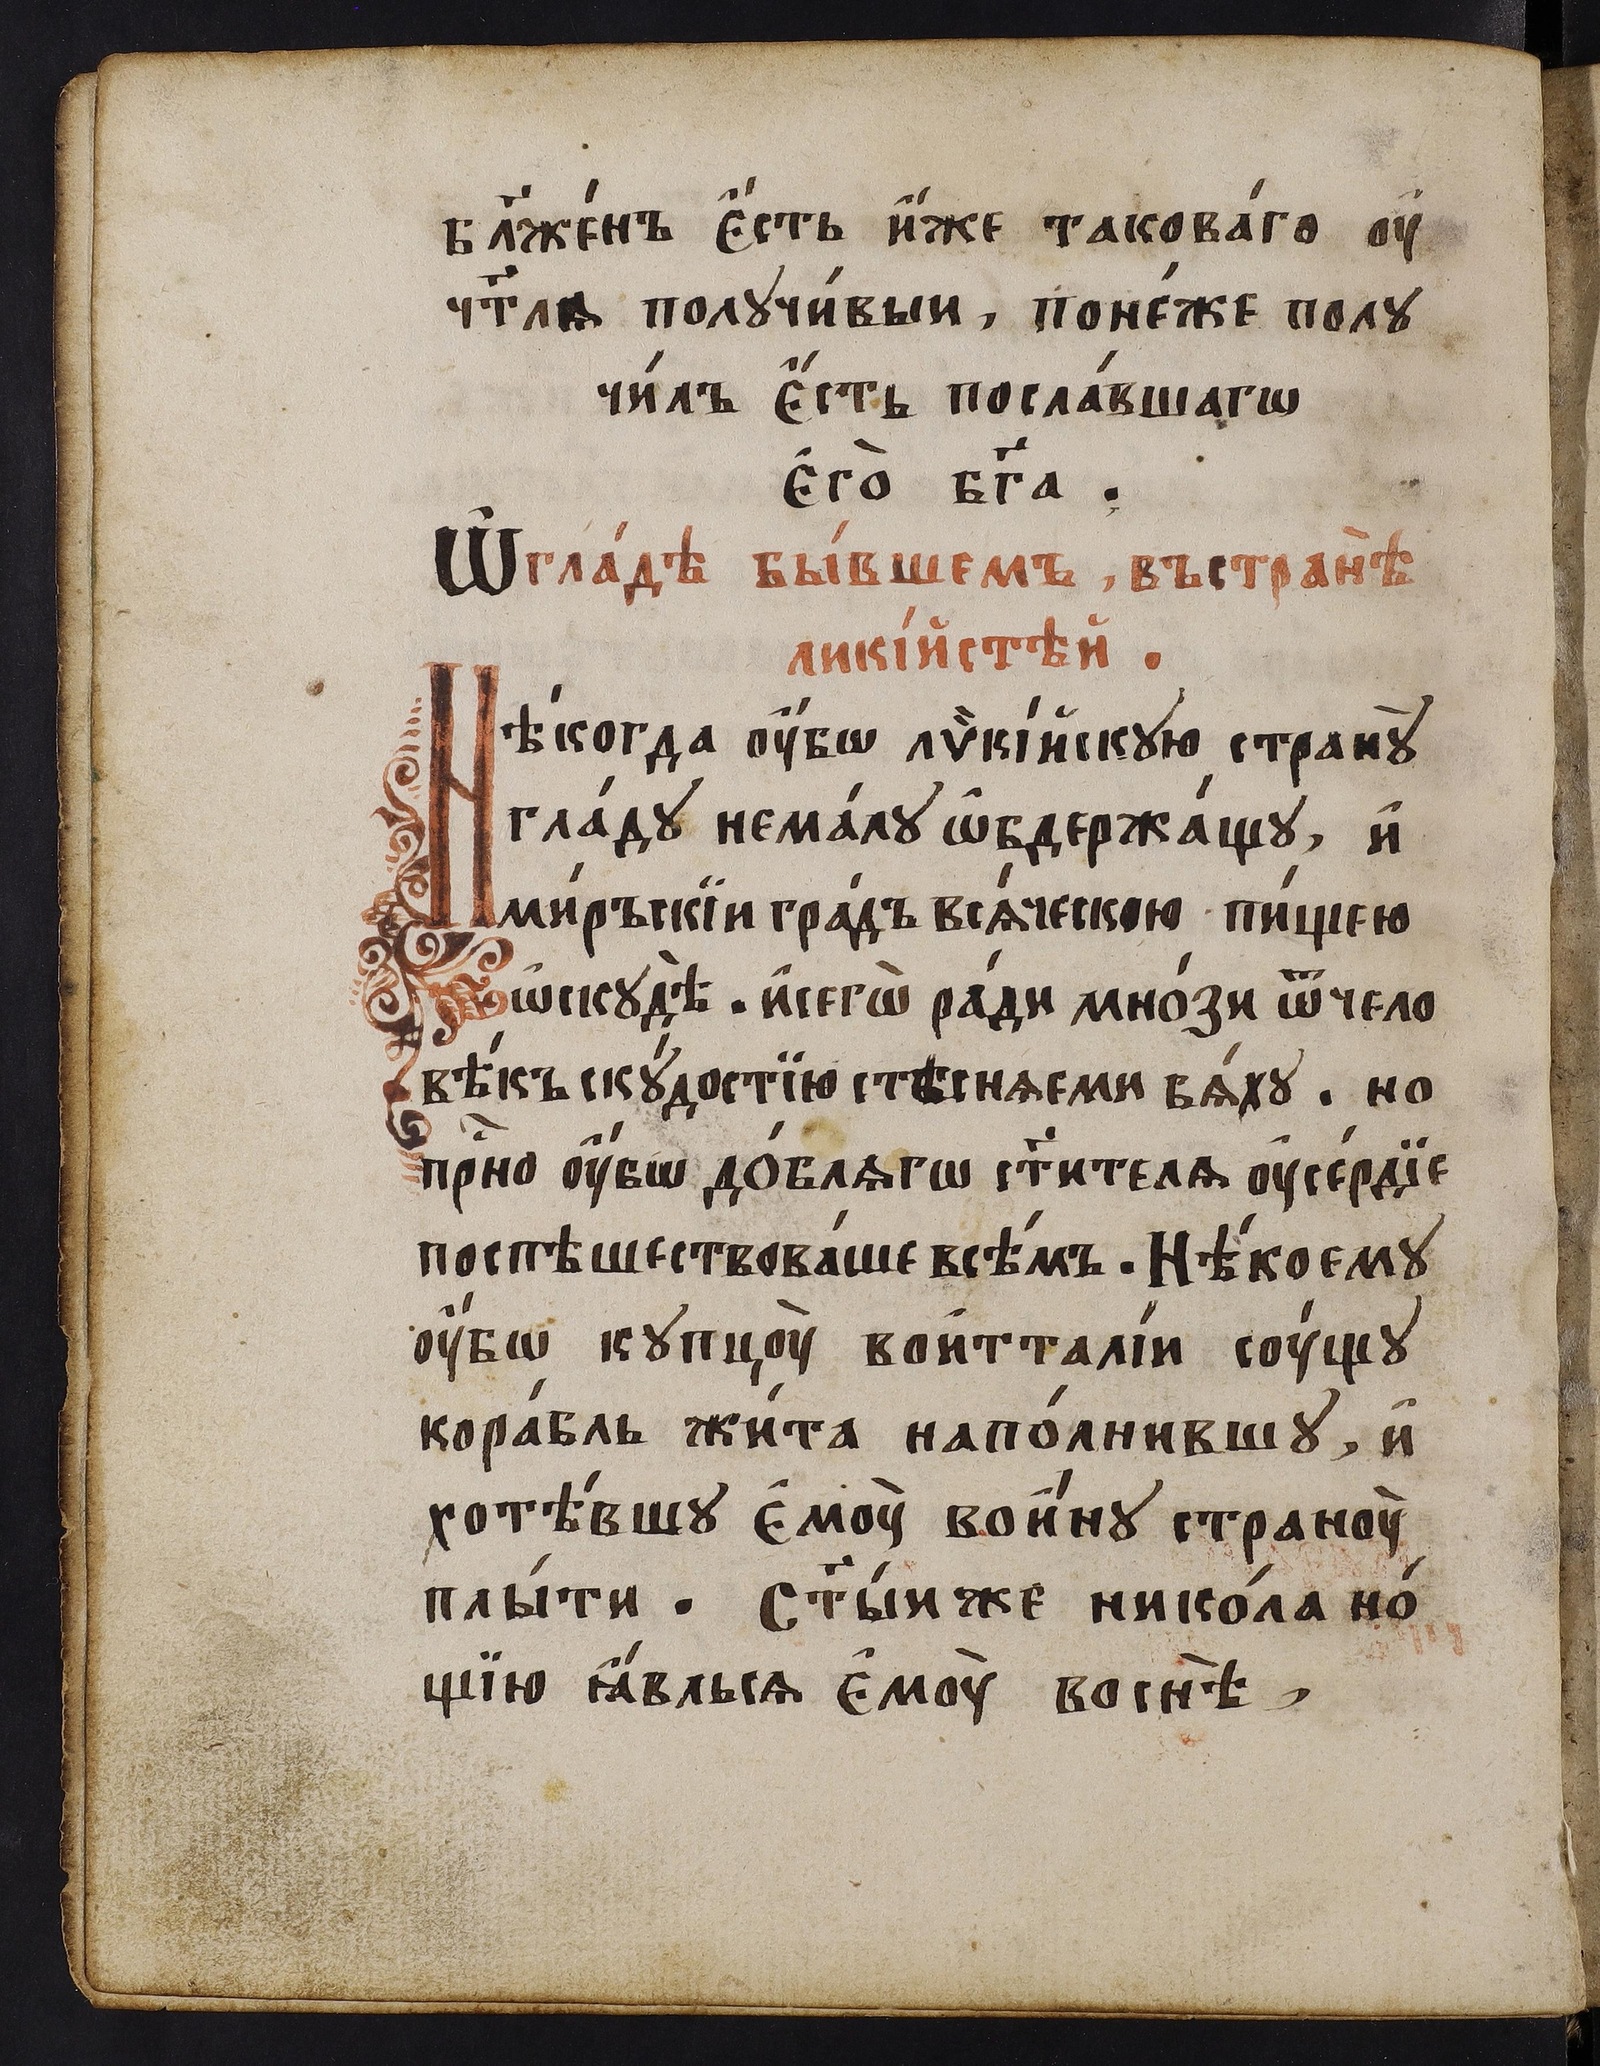 бл҃же́нъ є҆́сть и҆́же такова́го оу҆
чт҃лѧ получи́выи, поне́же полу
чи́лъ є҆́сть посла́вшагѡ
є҆го̀ бг҃а .
Ѡ҆ гла́дѣ бы́вшемъ, въстранѣ̀
ликі́йстѣй .
Нѣ́когда оу҆́бѡ лѵ̈кі́йскую странꙋ̀
гла́дꙋ нема́лꙋ ѡ҆бдержа́щꙋ, и҆
ми́ръскїи гра́дъ всѧ́ческою пи́щею
ѡ҆скꙋдѣ̀ . и҆сегѡ̀ ра́ди мно́зи ѿчело
вѣ́къ скꙋ́достїю стѣснѧеми бѧ́хꙋ . но
при҃но оу҆́бѡ до́блѧгѡ ст҃и́телѧ оу҆се́рдїе
поспѣшествова́ше всѣ́мъ . Нѣ́коемꙋ
оу҆́бѡ кꙋпцоу̀ вои҆тталі́и соу́щꙋ
кора́бль жи́та напо́лнившꙋ, и҆
хотѣ́вшꙋ є҆моу̀ вои҆́нꙋ страноу̀
плы́ти . Ст҃ы́и же нико́ла но́
щїю ꙗ҆́вльсѧ є҆моу̀ воснѣ̀ ,